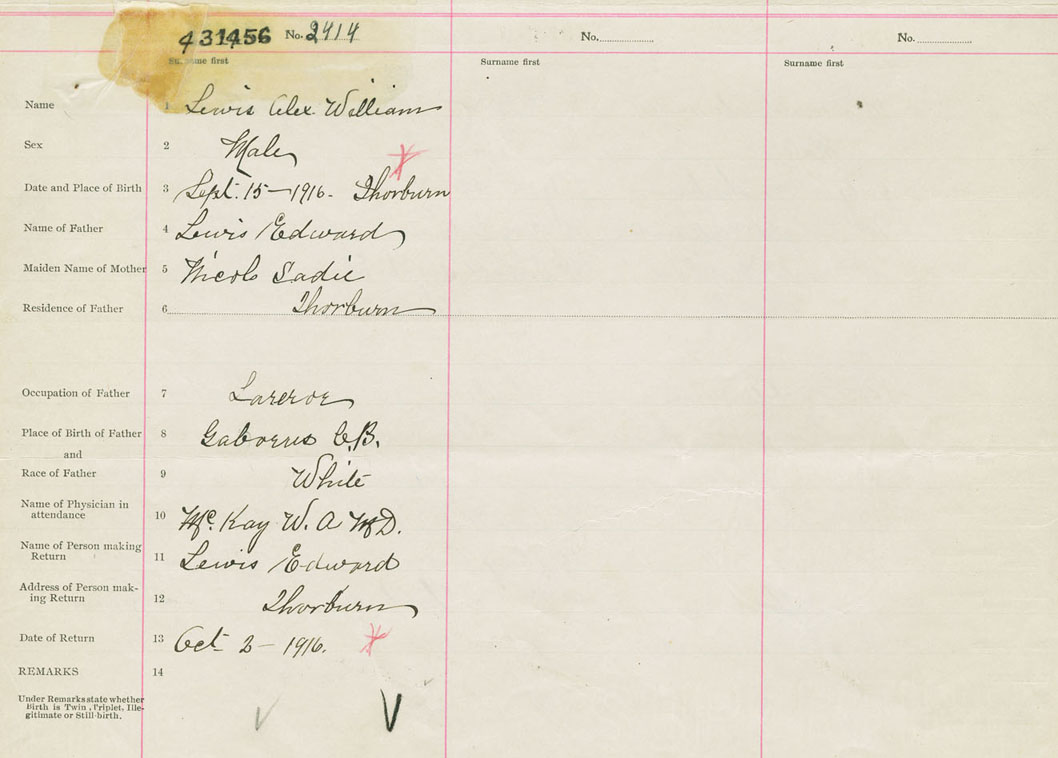 431456 No. 2414 No. No.
Surname first Surname first Surname first
Name 1 Lewis Alex. William
Sex 2 Male
Date and Place of Birth 3 Sept. 15 — 1916. Thorburn
Name of Father 4 Lewis Edward
Maiden Name of Mother 5 Nicols Sadie
Residence of Father 6 Thorburn
Occupation of Father 7
Place of Birth of Father 8 Gaborus C.B.
and
Race of Father 9 White
Name of Physician in
attendance 10 Mc. Kay W. A M.D.
Name of Person making
Return 11 Lewis Edward
Address of Person mak-
ing Return 12 Thorburn
Date of Return 13 Oct 2 — 1916.
REMARKS 14
Under Remarks state whether
Birth is Twin, Triplet, Ille-
gitimate or Still-birth.